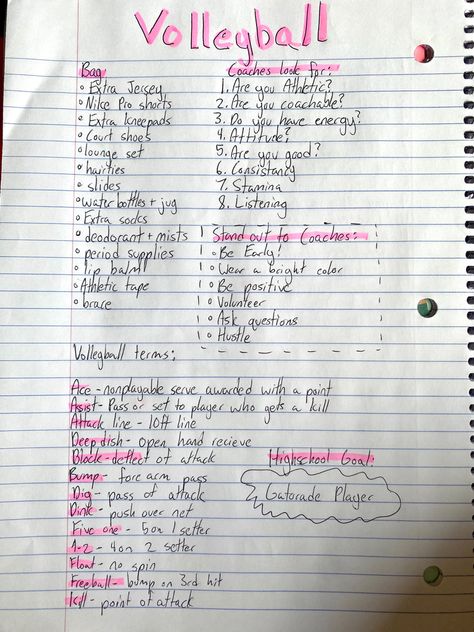 Volleyball
Bag
Extra Jersey
Nike Pro shorts
Extra Kneepads
Court shoes
lounge set
hairties
slides
water bottles + jug
Extra socks
deodorant + mists
period supplies
lip balm
Athletic tape
brace
Coaches look for:
1. Are you Athletic?
2. Are you coachable?
3. Do you have energy?
4. Attitude?
5. Are you good?
6. Consistancy
7. Stamina
8. Listening
Stand out to Coaches:
Be Early!
Wear a bright color
Be positive
Volunteer
Ask questions
Hustle
Volleyball terms:
Ace - nonplayable serve awarded with a point
Asist - Pass or set to player who gets a kill
Attack line - 10ft line
Deep dish - open hand recieve
Block - deflect of attack
Bump - fore arm pass
Dig - pass of attack
Dink - push over net
Five one - 5 on 1 setter
4-2 - 4 on 2 setter
Float - no spin
Freeball - bump on 3rd hit
Kill - point of attack
Highschool Goal:
Gatorade Player